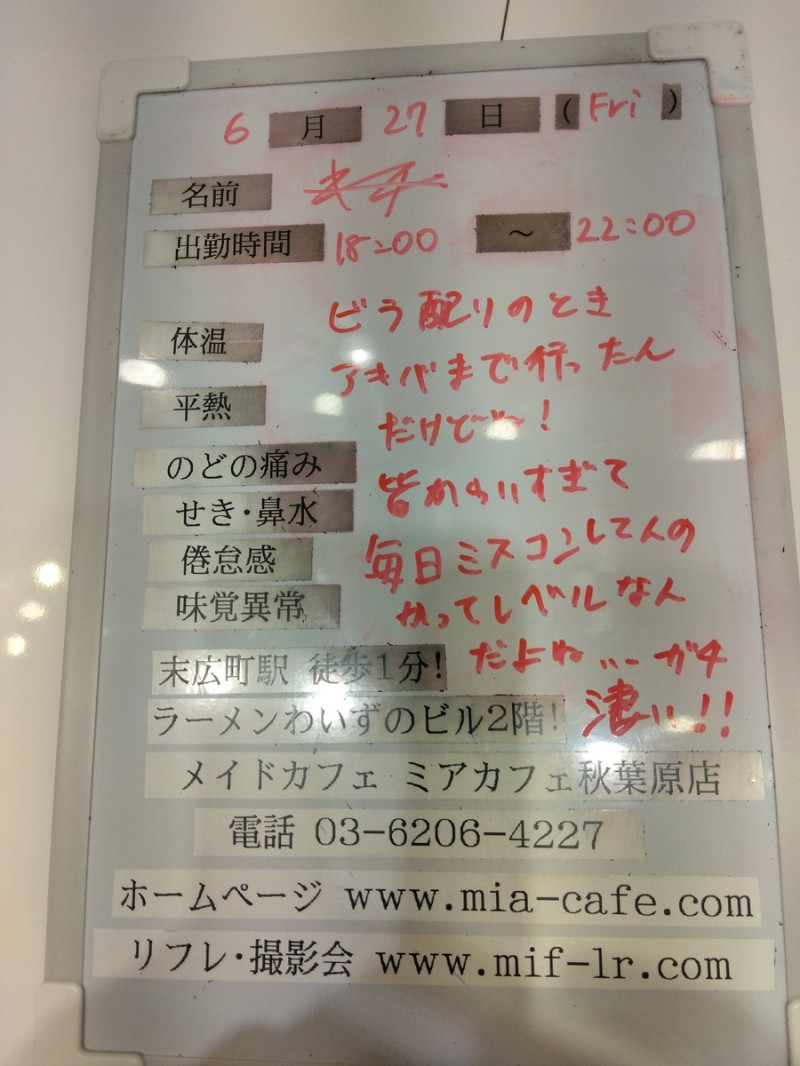 6 月 27 日 (Fri)
名前
出勤時間 18:00 ～ 22:00
体温
平熱
のどの痛み
せき・鼻水
倦怠感
味覚異常
ビラ配りのとき
アキバまで行ったん
だけどw!
皆かわいすぎて
毎日ミスコンしてんの
かってレベルなん
だよね... ガチ
凄い!!
末広町駅 徒歩1分!
ラーメンわいずのビル2階!
メイドカフェ ミアカフェ秋葉原店
電話 03-6206-4227
ホームページ www.mia-cafe.com
リフレ・撮影会 www.mif-lr.com